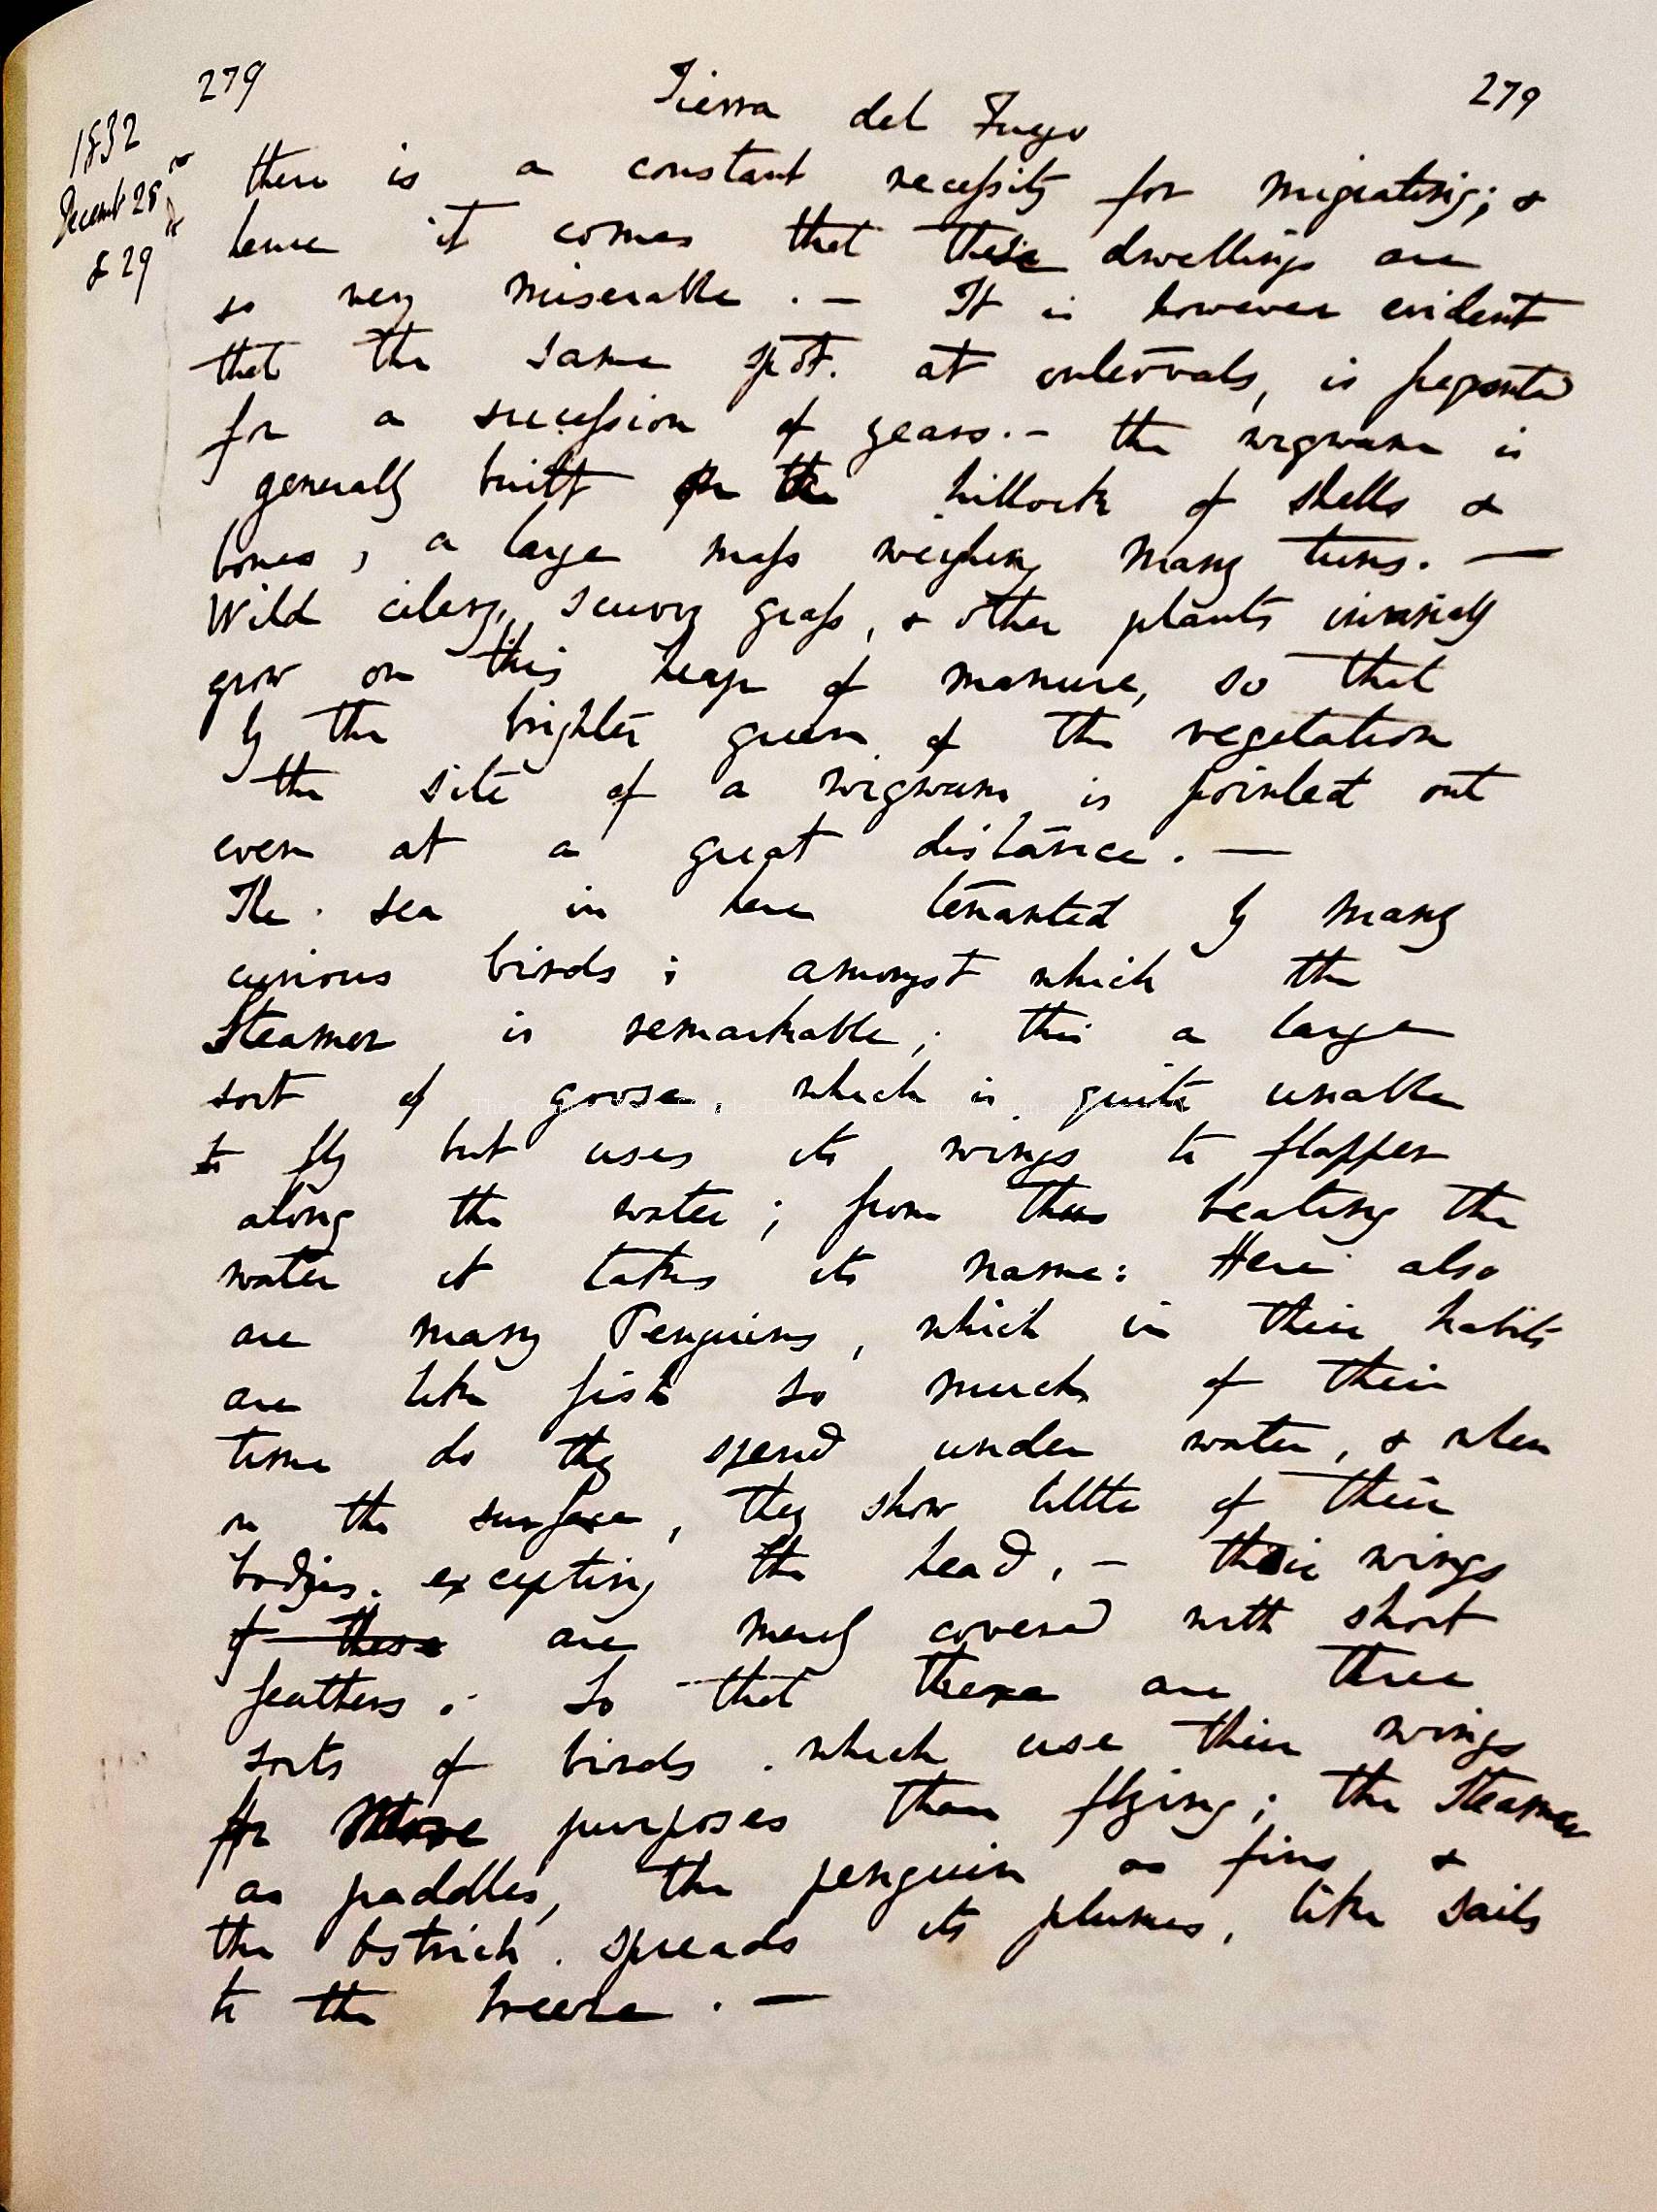 279 Tierra del Fuego 279
1832
Decemb 28th
& 29th
there is a constant necessity for migrating; &
hence it comes that these dwellings are
so very miserable. — It is however evident
that the same spot. at intervals, is frequented
for a succession of years. — the wigwam is
generally built on the hillock of shells &
bones, a large mass weighing many tuns. —
Wild celery, scurvy grass, & other plants invariably
grow on this heap of manure, so that
by the brighter green of the vegetation
the site of a wigwam is pointed out
even at a great distance. —
The sea is here tenanted by many
curious birds; amongst which the
Steamer is remarkable; this a large
sort of goose, which is quite unable
to fly but uses its wings to flapper
along the water; from thus beating the
water it takes its name: Here also
are many Penguins, which in their habits
are like fish so much of their
time do they spend under water, & when
on the surface, they show little of their
bodies. excepting the head. — their wings
of these are merely covered with short
feathers. So that there are three
sorts of birds. which use their wings
for more purposes than flying; the Steamer
as paddles, the penguin as fins, &
the Ostrich. spreads its plumes, like sails
to the breeze. —